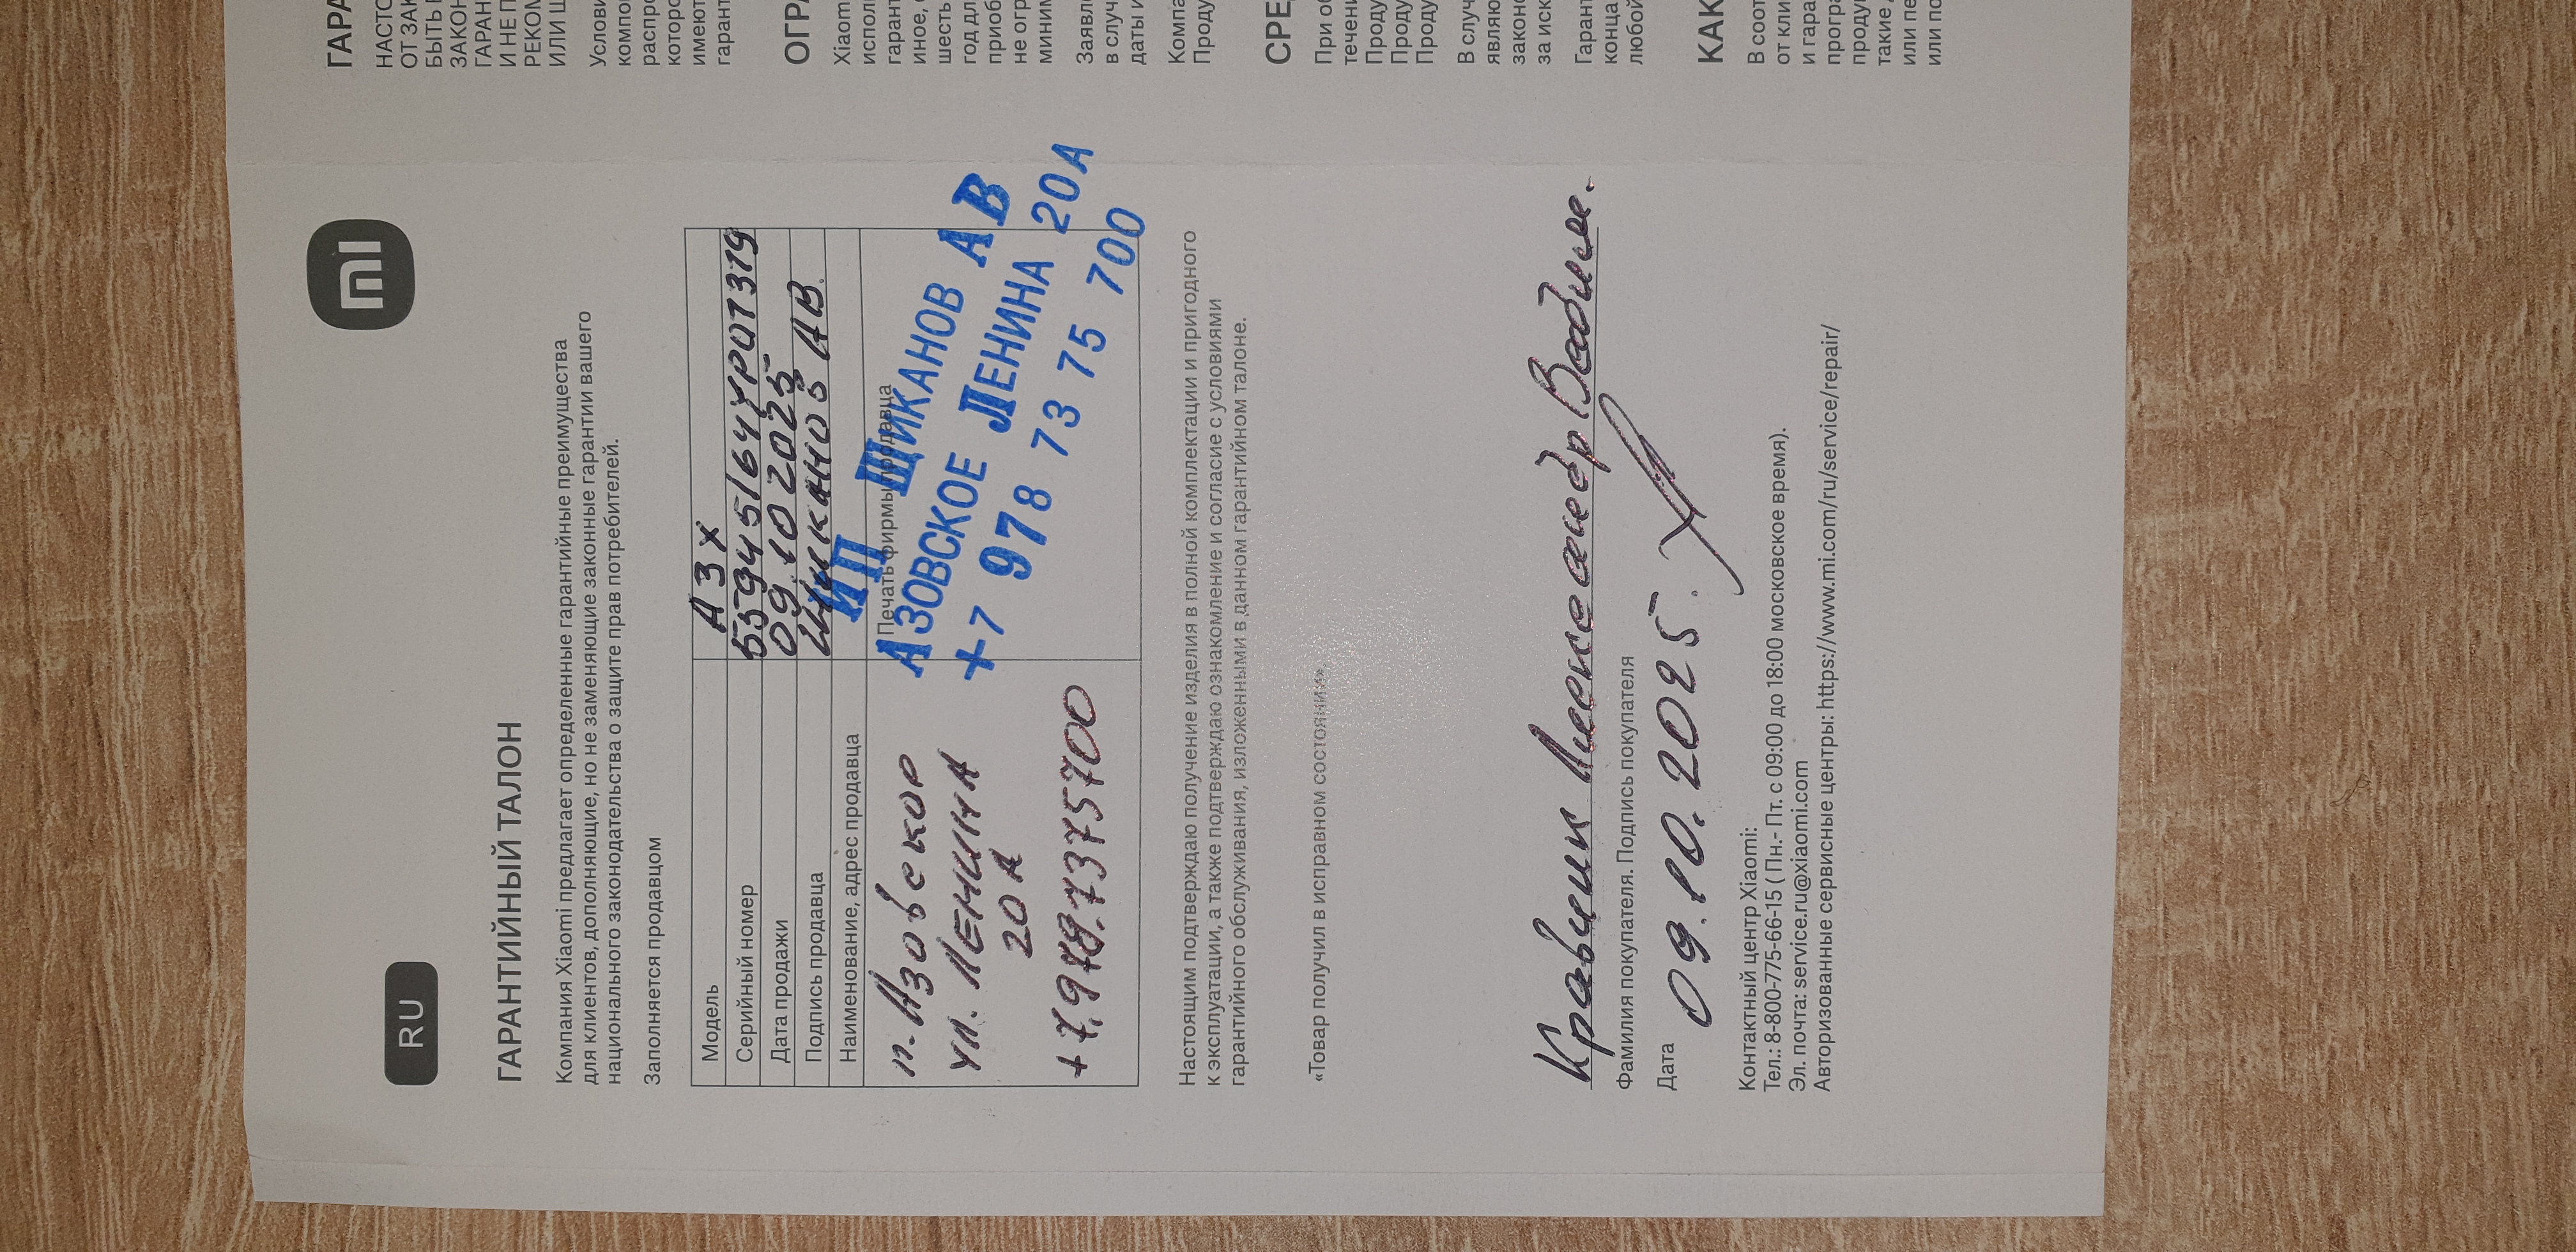 mi
RU
ГАРАНТИЙНЫЙ ТАЛОН
Компания Xiaomi предлагает определенные гарантийные преимущества
для клиентов, дополняющие, но не заменяющие законные гарантии вашего
национального законодательства о защите прав потребителей.
Заполняется продавцом
Модель А3х
Серийный номер
Дата продажи 09.10 2025
Подпись продавца Щиканов АВ
Наименование, адрес продавца
Печать фирмы продавца
ИП ЩИКАНОВ А В
АЗОВСКОЕ ЛЕНИНА 20А
+7 978 73 75 700
ул. ЛЕНИНА
20А
+7.978.7375700
Настоящим подтверждаю получение изделия в полной комплектации и пригодного
к эксплуатации, а также подтверждаю ознакомление и согласие с условиями
гарантийного обслуживания, изложенными в данном гарантийном талоне.
«Товар получил в исправном состоянии»
Александр Вадим.
Фамилия покупателя. Подпись покупателя
Дата 09.10.2025.
Контактный центр Xiaomi:
Тел.: 8-800-775-66-15 ( Пн.- Пт. с 09:00 до 18:00 московское время).
Эл. почта: service.ru@xiaomi.com
Авторизованные сервисные центры: https://www.mi.com/ru/service/repair/
ГАРА
НАСТО
ОТ ЗАК
БЫТЬ
ЗАКОН
ГАРАН
И НЕ П
РЕКОМ
ИЛИ Ш
Услови
компо
распро
которо
имеют
гарант
ОГРА
Xiaom
исполь
гарант
иное,
шесть
год дл
приоб
не огр
миним
Заявл
в случ
даты и
Компа
Проду
СРЕД
При об
течени
Проду
Проду
Проду
В случ
являю
законо
за иск
Гарант
конца
любой
КАК
В соот
от кли
и гара
програ
проду
такие
или пе
или по